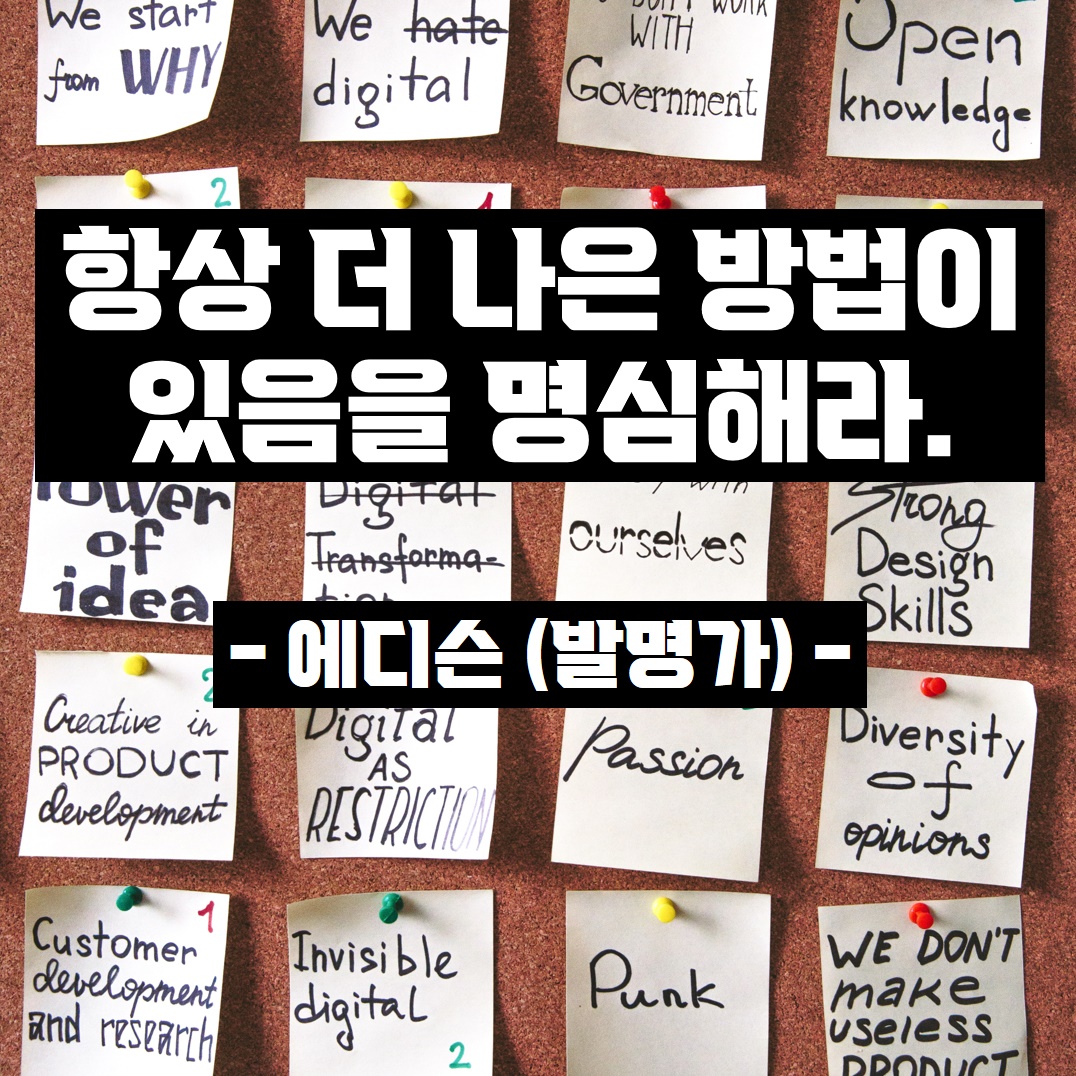 We start
from WHY
We hate
digital
DON'T WORK
WITH
Government
Open
knowledge
2
1
항상 더 나은 방법이
있음을 명심해라.
Power
of
idea
Digital
Transforma-
tion
with
ourselves
Strong
Design
Skills
- 에디슨 (발명가) -
2
Creative in
PRODUCT
development
Digital
AS
RESTRICTION
Passion
Diversity
of
opinions
1
Customer
development
and research
Invisible
digital
2
Punk
WE DON'T
make
useless
PRODUCT